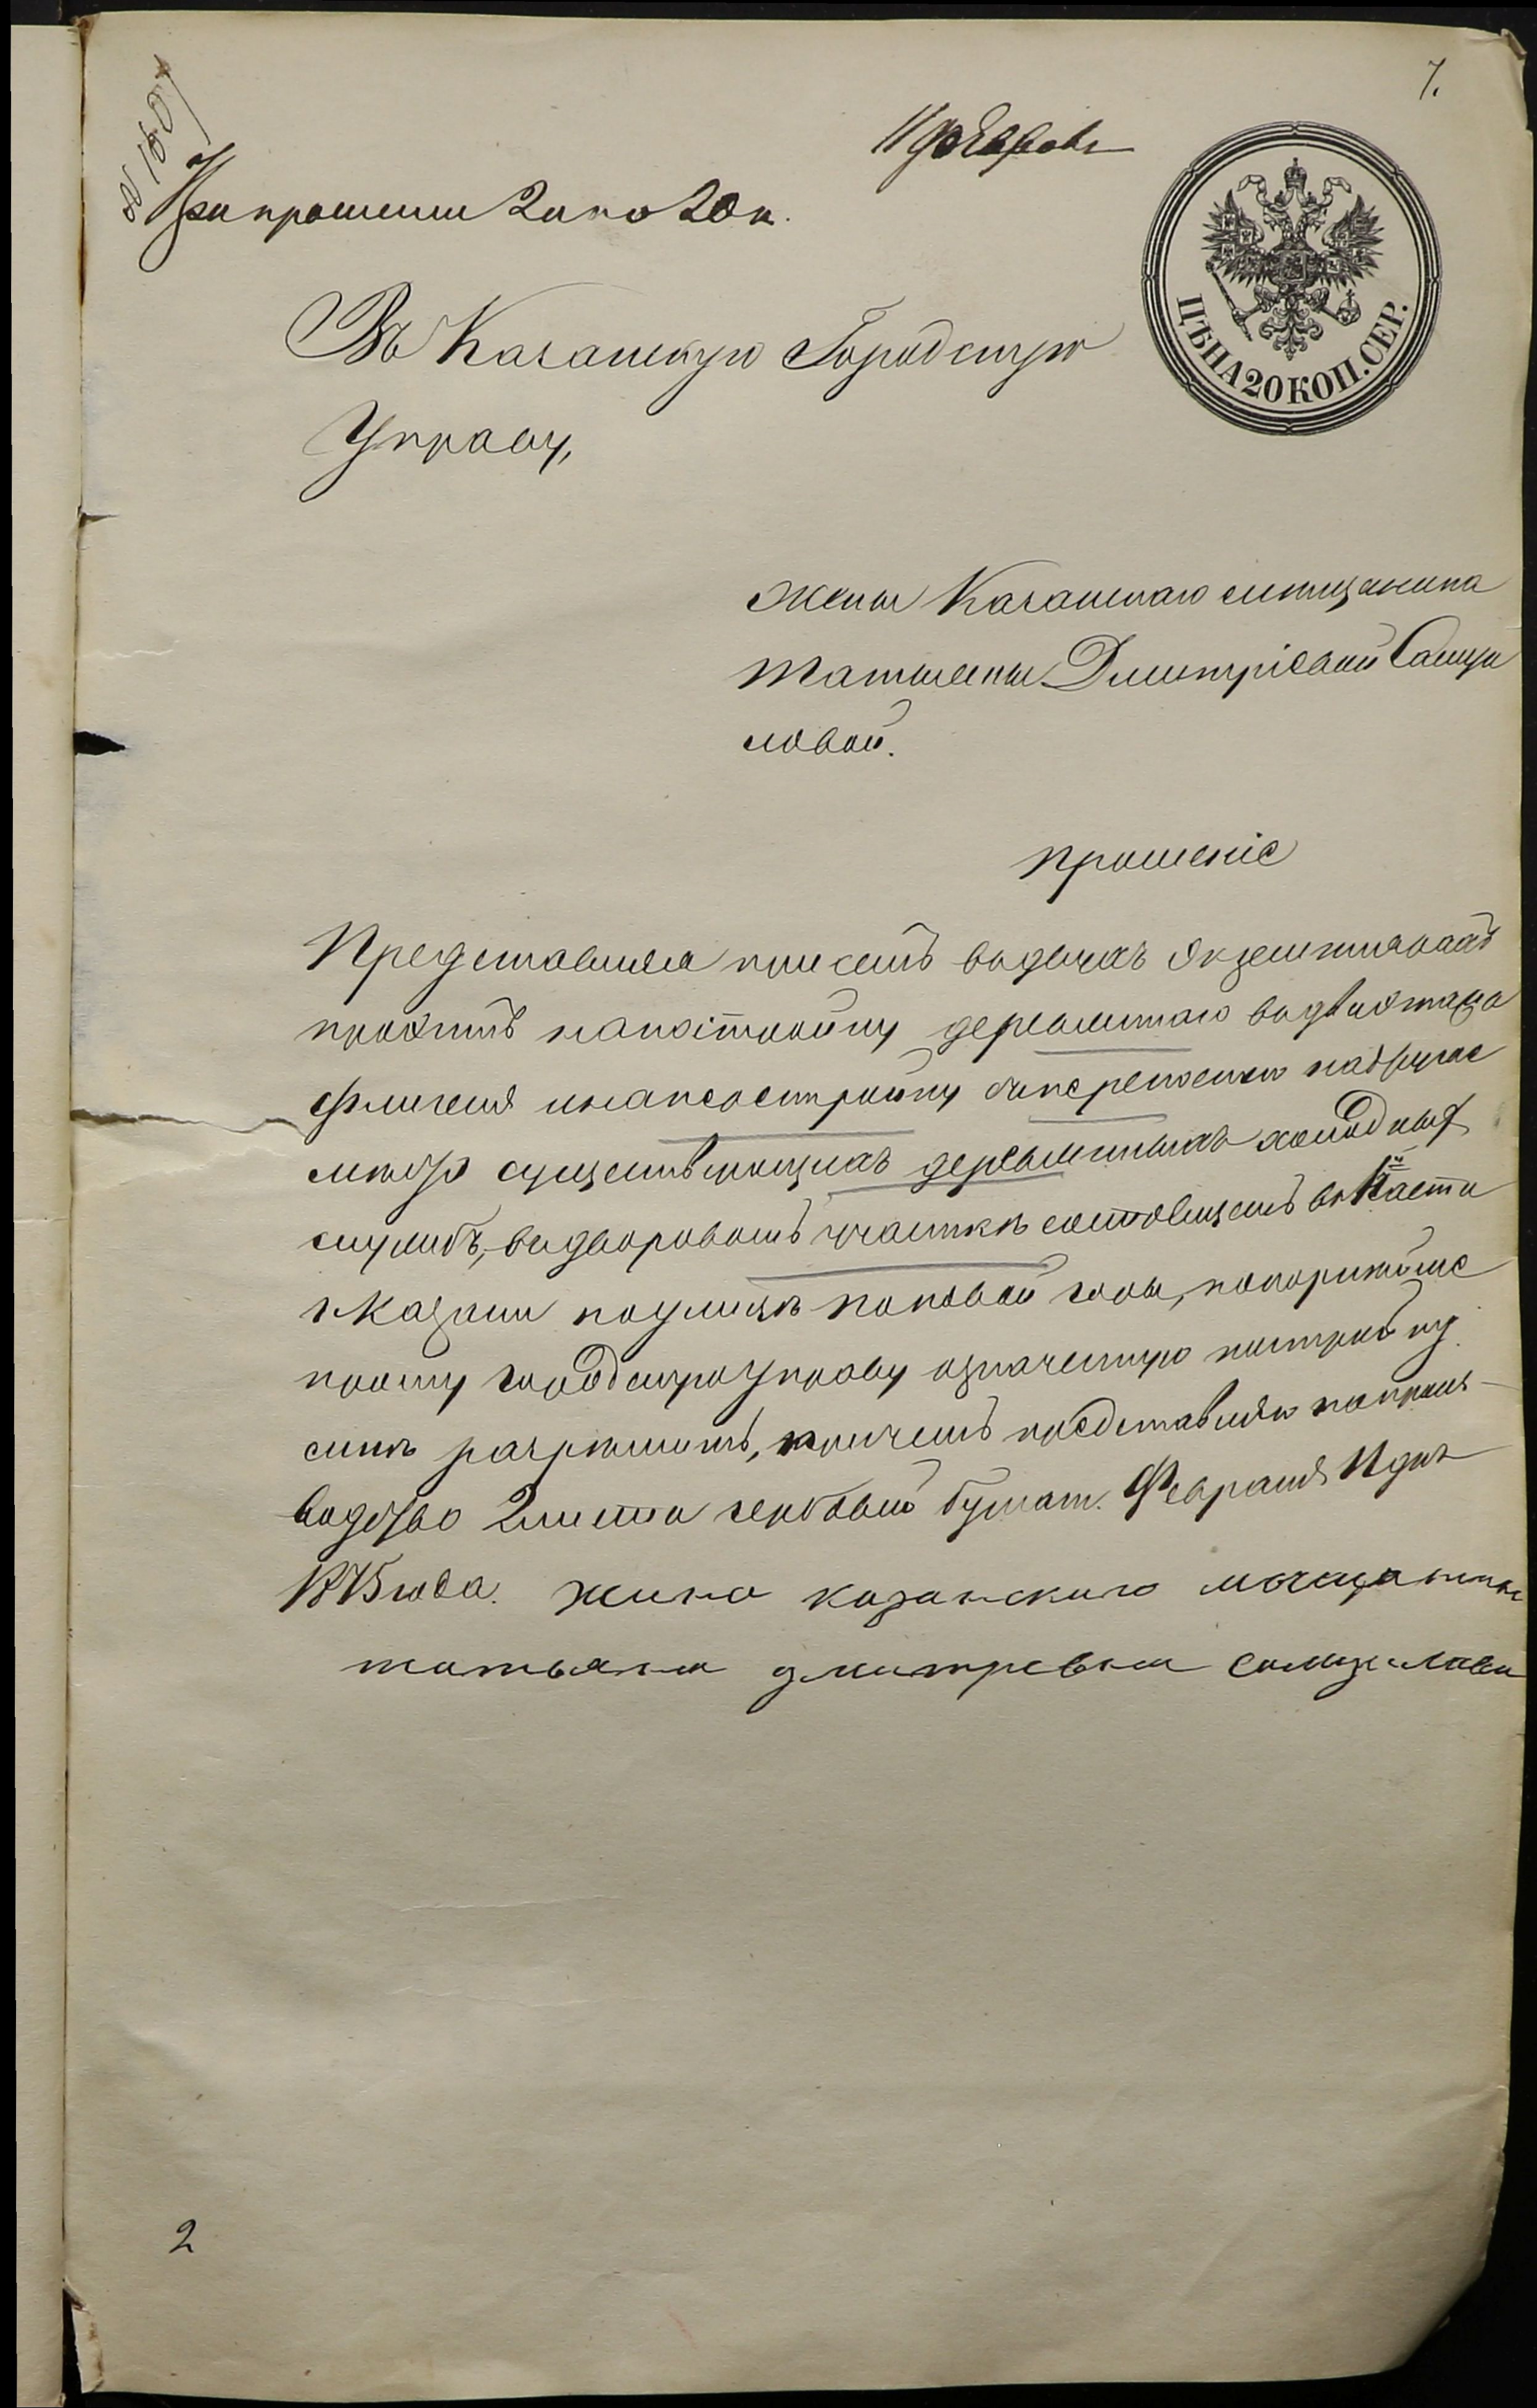 7.
11 февраля
При прошении 2 л по 20 к.
ЦѢНА 20 КОП. СЕР.
Въ Казанскую Городскую
Управу,
Жены Казанскаго мѣщанина
Татьяны Дмитріевой Самуи
ловой.
прошеніе
Представляя присемъ въ двухъ экземплярахъ
проэктъ на постройку деревяннаго въ два этажа
флигеля и на постройку съ переносомъ на другое
мѣсто существующихъ деревянныхъ холодныхъ
службъ, въ дворовомъ участкѣ состоящемъ во 2й части
г. Казани по улицѣ Поповой горы, покорнѣйше
прошу городскую Управу означенную постройку
мнѣ разрѣшить, причемъ представляю на произ-
водство 2 листа гербовой бумаги. Февраля 11 дня
1875 года. жина казанскаго мещанина
татьяна дмитревна самуилова
2